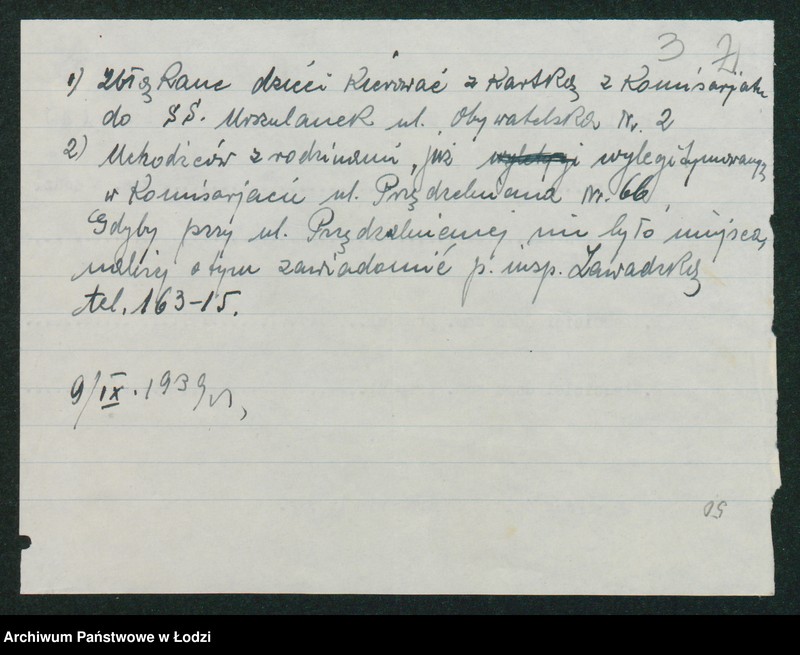 3 71
1) Zbłąkane dzieci kierować z kartką z Komisarjatu
do SS. Urszulanek ul. Obywatelska Nr. 2
2) Uchodźców z rodzinami, już wylegitymowanych
w Komisarjacie ul. Przędzalniana Nr. 66
Gdyby przy ul. Przędzalnianej nie było miejsca,
należy o tym zawiadomić p. insp. Zawadzką
tel. 163-15.
9/IX. 1939 r.
50
Archiwum Państwowe w Łodzi